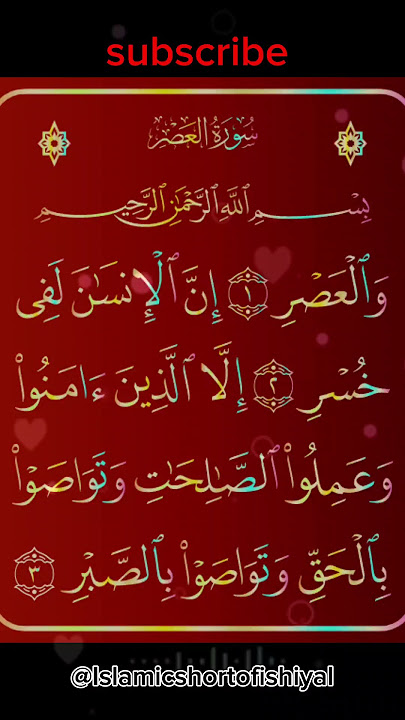 subscribe
سُورَةُ العَصْرِ
بِسْمِ اللَّهِ الرَّحْمَٰنِ الرَّحِيمِ
وَٱلْعَصْرِ ١ إِنَّ ٱلْإِنسَٰنَ لَفِى
خُسْرٍ ٢ إِلَّا ٱلَّذِينَ ءَامَنُوا۟
وَعَمِلُوا۟ ٱلصَّٰلِحَٰتِ وَتَوَاصَوْا۟
بِٱلْحَقِّ وَتَوَاصَوْا۟ بِٱلصَّبْرِ ٣
@Islamicshortofishiyal